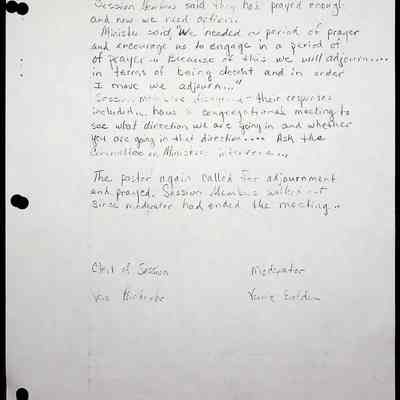 Session Members said they had prayed enough
and now we need action.
Minister said, "We needed a period of prayer
and encourage us to engage in a period of
of prayer. Because of this we will adjourn....
in terms of being decent and in order
I move we adjourn..."
Session members - their responses
included... have a congregational meeting to
see what direction we are going in and whether
you are going in that direction.... Ask the
Committee on Ministry intervene...
The pastor again called for adjournment
and prayed. Session Members walked out
since moderator had ended the meeting..
Clerk of Session Moderator